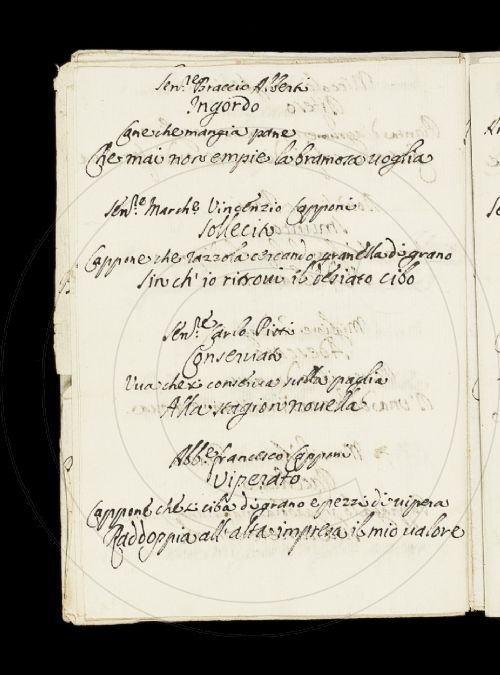 Sen.re Braccio Alberti
Ingordo
Cane che mangia pane
Che mai non empie la bramosa uoglia
Sen.re March.e Vincenzio Capponi
Sollecito
Cappone che razzola cercando granella di grano
Sin ch' io ritroui il desiato cibo
Sen.re Carlo Pitti
Conseruato
Uua che si conserua nella paglia
Alla stagion nouella
Abb.e Francesco Capponi
Viperato
Cappone che si ciba di grano e pezzi di uipera
Raddoppia all' alta impresa il mio ualore